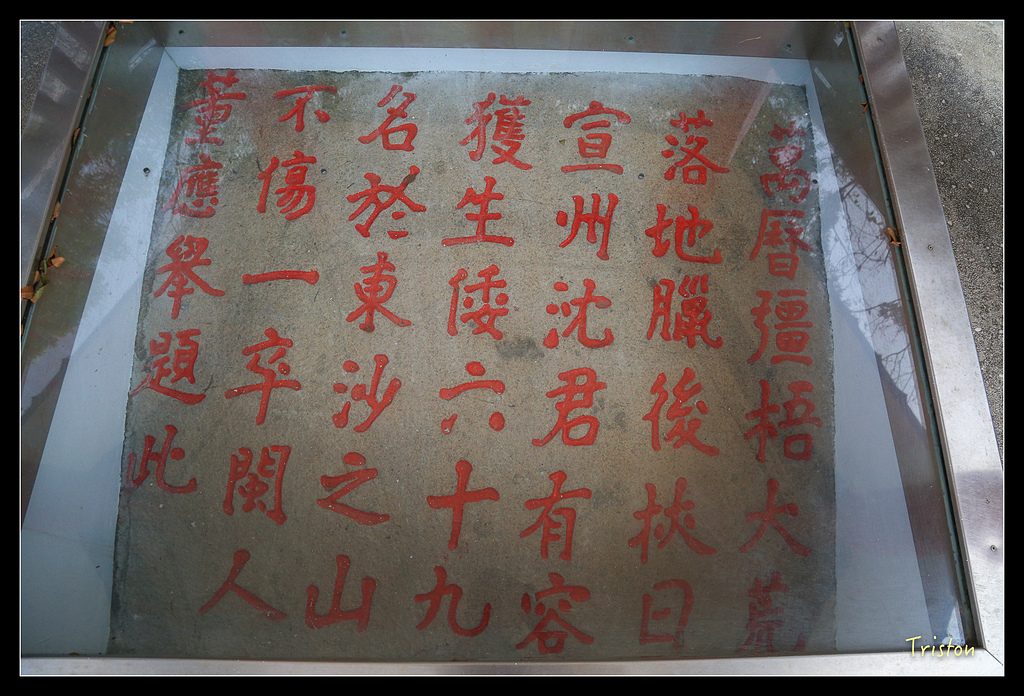 萬曆彊梧大荒
落地臘後挾日
宣州沈君有容
獲生倭六十九
名於東沙之山
不傷一卒閩人
董應舉題此
Triston